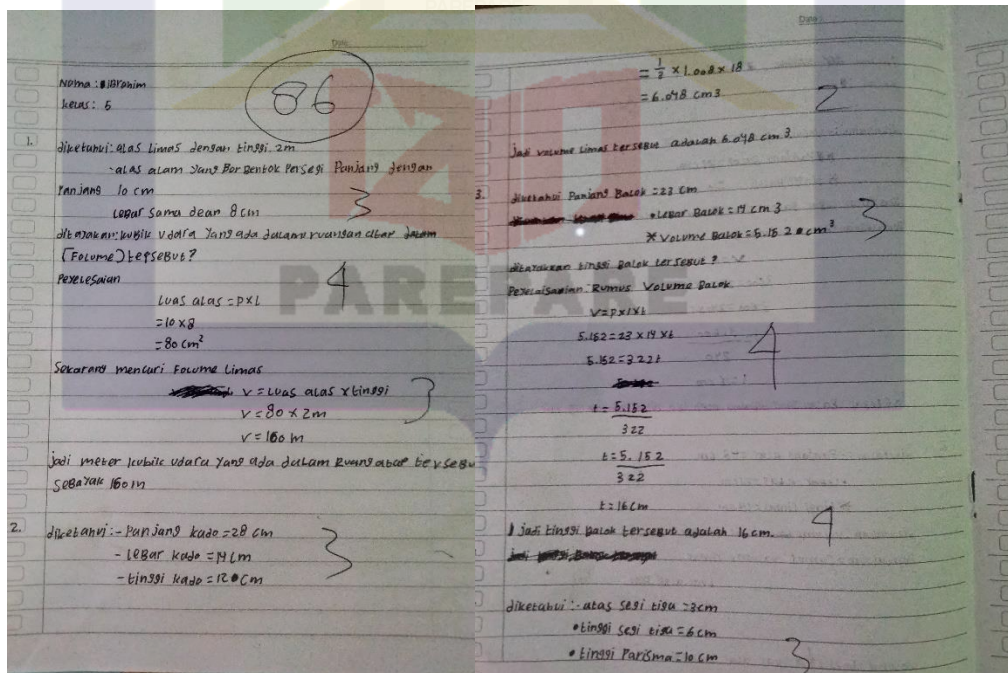 Date:
Nama : iBrahim
kelas : 5
86
1. diketahui: alas Limas dengan tinggi. 2m
- alas alam yang BerBentok Persegi Panjang dengan
Panjang 10 cm
LeBar sama dean 8 cm
3
ditayakan: kubik Udara Yang ada dalam ruangan atap dalam
(Folume) tersebut?
4
Peyelesaian
Luas alas = P x L
= 10 x 8
= 80 cm²
Sekarang mencari Folume Limas
V = Luas alas x tinggi
V = 80 x 2m
3
V = 160 m
jadi meter kubik udara yang ada dalam Ruang atap tersebu
SeBayak 160 m
2. diketahui: - Panjang kado = 28 cm
- LeBar kado = 14 cm
- tinggi kado = 12 cm
3
PAREPARE
Date:
= 1/3 x 1.008 x 18
= 6.048 cm3
2
jadi volume Limas tersebut adalah 6.048 cm 3
3. diketahui Panjang Balok = 23 cm
• LeBar Balok = 14 cm 3
* Volume Balok = 5.152 cm³
3
ditayakan tinggi Balok terseBut?
Peyelaisaian: Rumus Volume Balok
V = P x l x t
5.152 = 23 x 14 x t
5.152 = 322t
4
t = 5.152
322
t = 5.152
322
t = 16 cm
jadi tinggi Balok terseBut adalah 16 cm.
4
diketahui: - alas segi tiga = 3 cm
• tinggi segi tiga = 6 cm
• tinggi Parisma = 10 cm
3